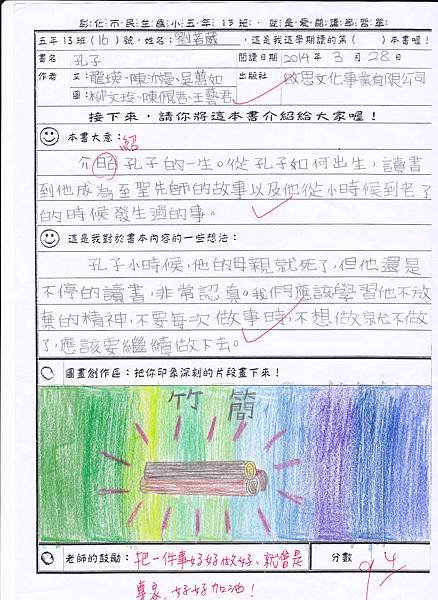 彰化市民生國小五年13班,就是愛閱讀學習單
五年13班(16)號,姓名:劉若葳,這是我這學期讀的第( )本書喔!
書名 孔子 閱讀日期 2014年3月28日
作者 文:龍瑛、陳沛慢、吳蕙如 出版社 啟思文化事業有限公司
圖:柳文玲、陳佩香、王藝君
接下來,請你將這本書介紹給大家喔!
本書大意: 紹
介昭孔子的一生。從孔子如何出生,讀書
到他成為至聖先師的故事以及他從小時候到老了
的時候發生過的事。
這是我對於書本內容的一些想法:
孔子小時候,他的母親就死了,但他還是
不停的讀書,非常認真。我們應該學習他不放
棄的精神,不要每次做事時,不想做就不做
了,應該要繼續做下去。
圖畫創作區:把你印象深刻的片段畫下來!
竹簡
老師的鼓勵:把一件事好好做好、就會是 分數 94
專家,好好加油!